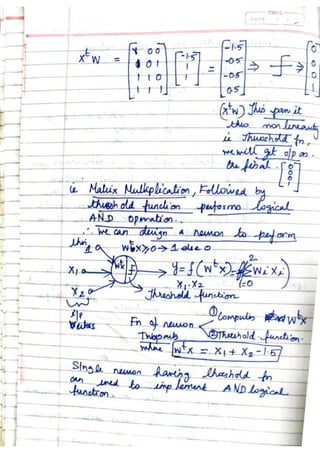 XᵗW = [1 0 0; 1 0 1; 1 1 0; 1 1 1] [-1.5; 1; 1] = [-1.5; -0.5; -0.5; 0.5] ⇒ ⇒ [0; 0; 0; 1]
(xᵗw) This pass it
this non linearity
ie Threshold fn,
we will get o/p as
the final [0; 0; 0; 1]
ie Matrix Multiplication, Followed by
threshold function performs logical
AND operation.
∴ we can design a neuron to perform
this
1 Wᵗx ≥ 0 → 1 else 0
X₁ Wᵗx f y = f(Wᵗx) = f Σ Wi Xi
2 i=0
X₁·X₂
X₂ Threshold function
I/P
Fn of neuron ① Computes WᵗX
Two parts ② Threshold function.
where WᵗX = X₁ + X₂ - 1.5
Single neuron having threshold fn
can used to implement AND logical
function.